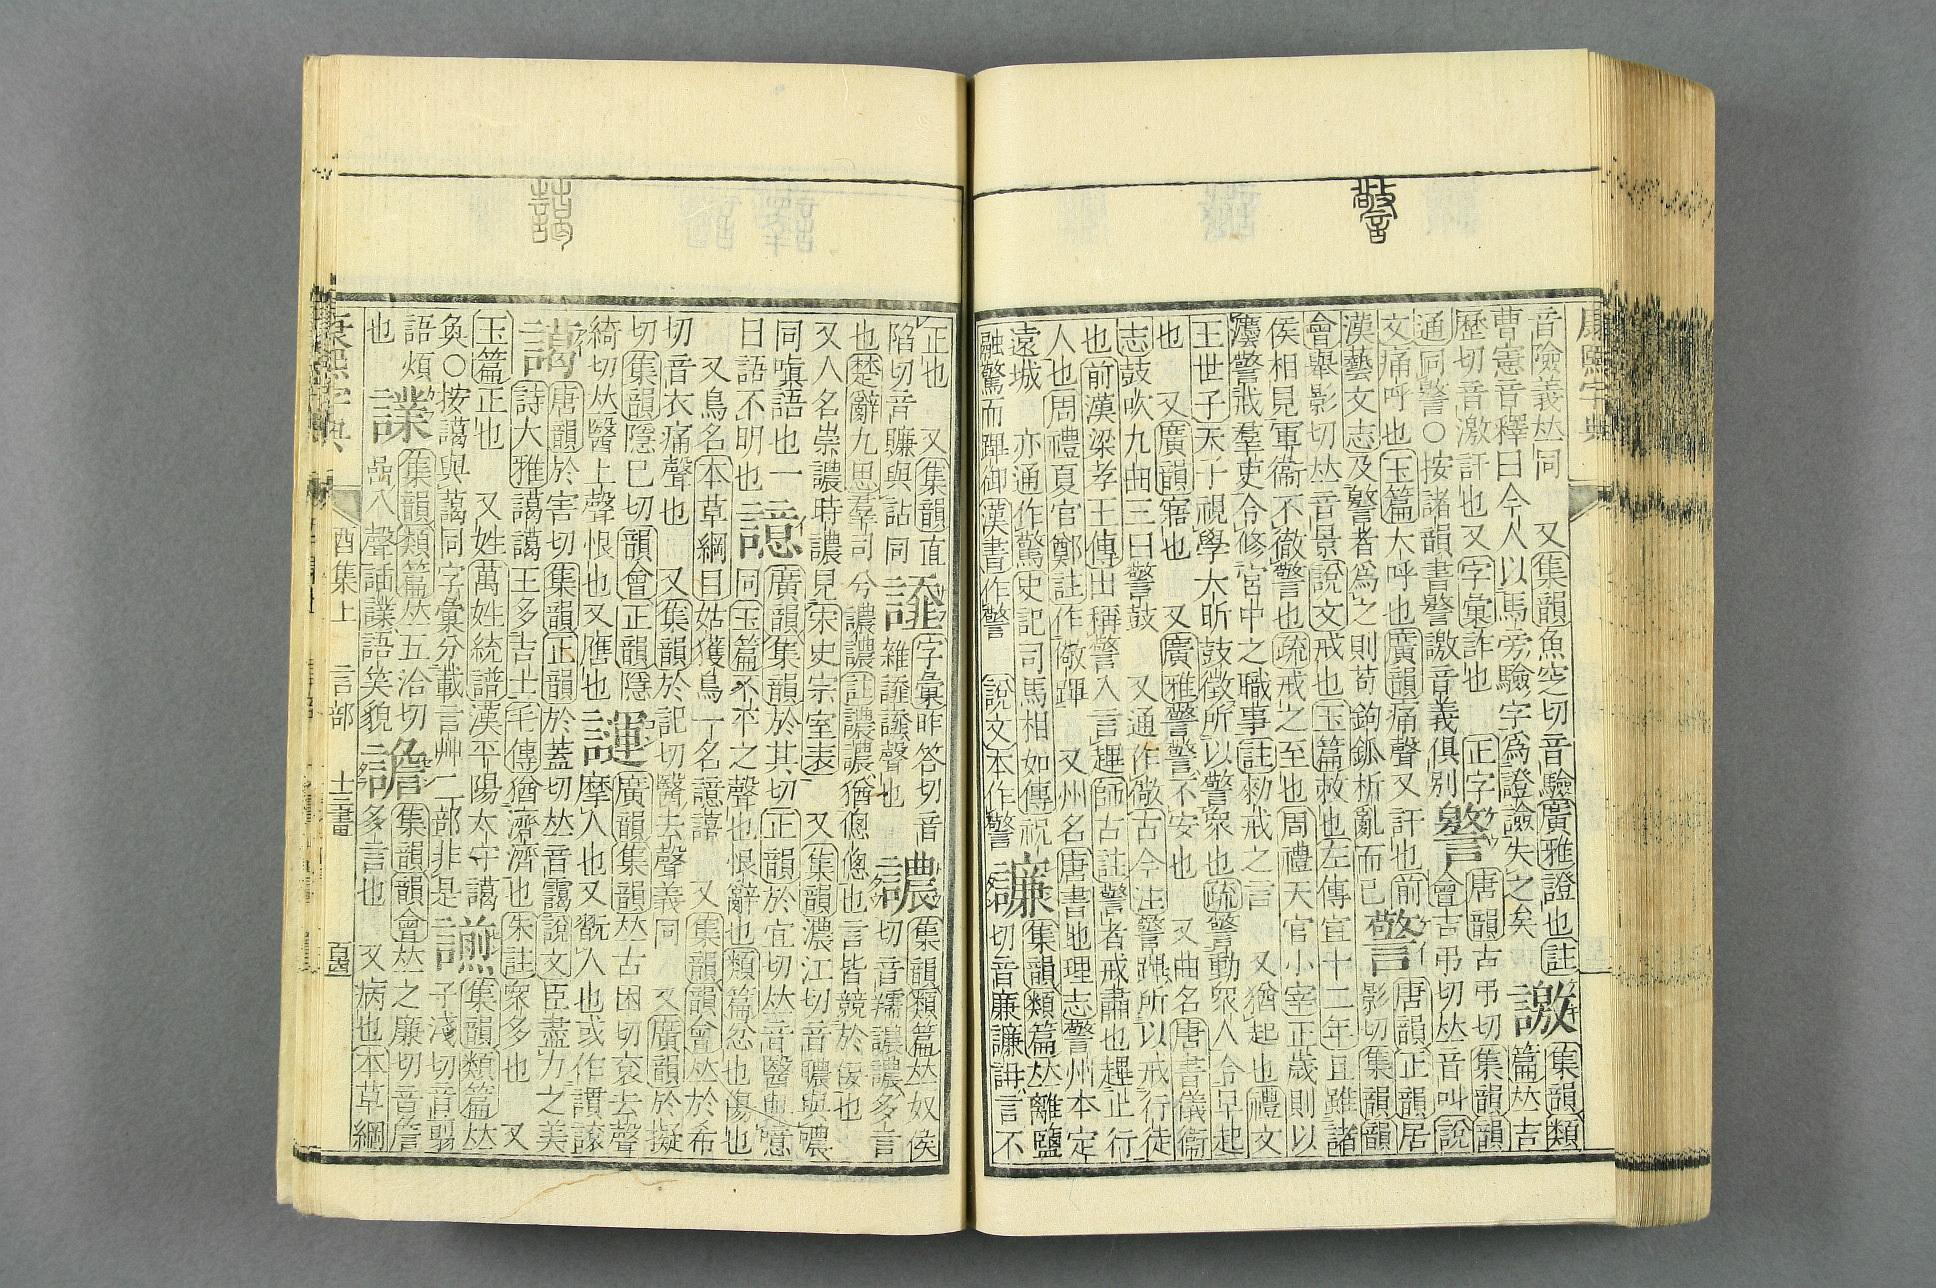 康熙字典
警
音險義𠀤同 又集韻魚窆切音驗廣雅證也註
曹憲音釋曰今人以馬旁驗字為證譣失之矣
譤
集韻類
篇𠀤吉
歷切音激訐也又字彙詐也 正字
通同警○按諸韻書警譤音義俱別
唐韻古弔切集韻韻
會吉弔切𠀤音叫說
文痛呼也玉篇大呼也廣韻痛聲又訐也前
漢藝文志及警者為之則苟鉤鈲析亂而已
警
唐韻正韻居
影切集韻韻
會舉影切𠀤音景說文戒也玉篇敕也左傳宣十二年且雖諸
侯相見軍衞不徹警也疏戒之至也周禮天官小宰正歲則以
灋警戒羣吏令修宮中之職事註勑戒之言 又猶起也禮文
王世子天子視學大昕鼓徵所以警衆也疏警動衆人令早起
也 又廣韻寤也 又廣雅警警不安也 又曲名唐書儀衞
志鼓吹九曲三曰警鼓 又通作儆古今注警蹕所以戒行徒
也前漢梁孝王傳出稱警入言趕師古註警者戒肅也趕止行
人也周禮夏官鄭註作儆蹕 又州名唐書地理志警州本定
遠城 亦通作驚史記司馬相如傳祝
融驚而蹕御漢書作警 說文本作警
譧
集韻類篇𠀤離鹽
切音廉譧謰言不
謁
正也 又集韻直
陷切音賺與詀同
字彙昨答切音
雜
聲也
譨
集韻類篇𠀤奴侯
切音羺譨譨多言
也楚辭九思羣司兮譨譨註譨譨猶偬偬也言皆競於佞也
又人名崇譨時譨見宋史宗室表 又集韻濃江切音膿與噥
同嗔語也一
曰語不明也
譩
廣韻集韻於其切正韻於宜切𠀤音醫與噫
同玉篇不平之聲也恨辭也類篇忿也傷也
又鳥名本草綱目姑獲鳥一名譩譆 又集韻韻會𠀤於希
切音衣痛聲也 又集韻於記切醫去聲義同 又廣韻於擬
切集韻隱已切韻會正韻隱
綺切𠀤醫上聲恨也又應也
廣韻集韻𠀤古困切衮去聲
摩人也又翫人也或作謴
譪
唐韻於害切集韻正韻於蓋切𠀤音靄說文臣盡力之美
詩大雅譪譪王多吉士毛傳猶濟濟也朱註衆多也 又
玉篇正也 又姓萬姓統譜漢平陽太守譪
奐○按譪與藹同字彙分載言艸二部非是
集韻類篇𠀤
子淺切音翦
語煩
也
集韻類篇𠀤五洽切
語笑貌
譫
集韻韻會𠀤之廉切音詹
多言也 又病也本草綱
康熙字典 酉集上 言部 十三畫